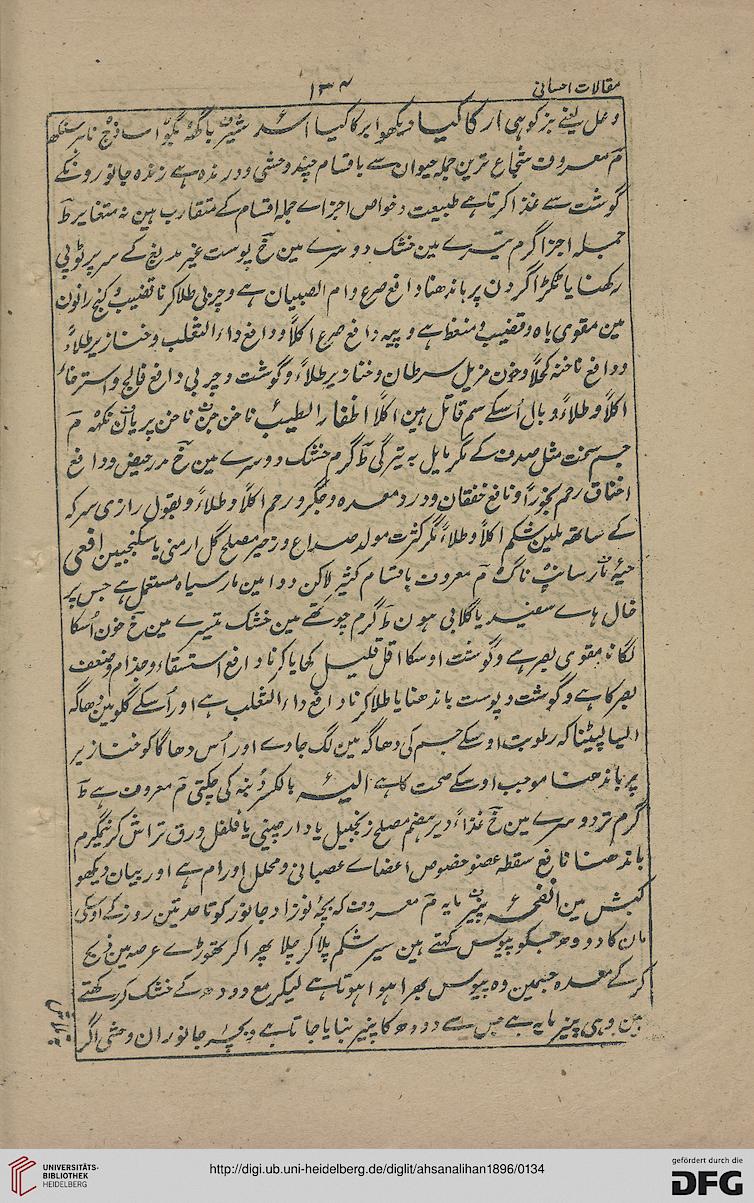 مقالات احسانی
۱۳۴
وعل یعنے بزکوہی ارکاکیا دیکھو ابرکاکیا اسد شیر باگھ
م معروف شجاع ترین جملہ حیوان سے باقسام چند وحشی و درندہ ہے زندہ جانورونکے
گوشت سے غذا کرتا ہے طبیعت و خواص اجزاے جملہ اقسام کے متقارب ہین نہ متغایر ط
جملہ اجزا گرم تیسرے مین خشک دوسرے مین خ پوست غیر مدبوغ کے سر پر ٹوپی
رکھنا یا ٹکڑا گردن پر باندھنا دافع صرع و ام الصبیان ہے و چربی طلا کرنا قضیب و کنج رانون
مین مقوی باہ و قضیب و منعظ ہے و پیہ دافع صرع اکلاً و دافع داء الثعلب و خنازیر طلاءً
و دافع ناخنہ کحلاً و خون مزیل سرطان و خنازیر طلاءً و گوشت و چربی دافع فالج و استرخاء
اکلاً و طلاءً و بال اُسکے سم قاتل ہین اکلاً اظفار الطیب ناخن جن ناخن پریان نکھہ م
جسم سخت مثل صدف کے مگر مایل بہ تیرگی ط گرم خشک دوسرے مین خ مدر حیض و دافع
اختناق رحم بخوراً و نافع خفقان و درد معدہ و جگر و رحم اکلاً و طلاءً و بقول رازی سرکہ
کے ساتھہ ملین شکم اکلاً و طلاءً مگر کثرت مولد صداع و زحیر مصلح گل ارمنی یا سکنجبین افعی
حیہ مار سانپ ناگ م معروف باقسام کثیر لاکن دوا مین مار سیاہ مستعمل ہے جس پر
خال ہاے سفید یا گلابی ہون ط گرم چوتھے مین خشک تیسرے مین خ خون اُسکا
لگانا مقوی بصر ہے و گوشت اوسکا اقل قلیل کھایا کرنا دافع استسقاء و جذام و ضعف
بصر کا ہے و گوشت و پوست باندھنا یا طلا کرنا دافع داء الثعلب ہے اور اُسکے گلو مین دھاگہ
ایسا لپیٹنا کہ رطوبت اوسکے جسم کی دھاگہ مین لگ جاوے اور اُس دھاگا کو خنازیر
پر باندھنا موجب اوسکے صحت کا ہے الیہ بالکسر دُنبہ کی چکتی م معروف ہے ط
گرم تر دوسرے مین خ غذاءً دیر ہضم مصلح زنجبیل یا دارچینی یا فلفل ورق تراش کر نیمگرم
باندھنا نافع سقطہ عضو خصوص اعضاے عصبانی و محلل اورام ہے اور بیان دیکھو
کبش مین انفحہ پنیر مایہ م معروف کہ بچہ نوزاد جانور کو تا حد تین روز کے اوسکی
مان کا دودھ جسکو پیوس کہتے ہین سیر شکم پلا کر چلا پھرا کر تھوڑے عرصہ مین ذبح
کرکے معدہ جسمین وہ پیوس بھرا ہوا ہوتا ہے لیکر مع دودھ کے خشک کر رکھتے
ہین وہی پنیر مایہ ہے جس سے دودھ کا پنیر بنایا جاتا ہے و بچہ جانوران وحشی اگر
UNIVERSITÄTS-
BIBLIOTHEK
HEIDELBERG
http://digi.ub.uni-heidelberg.de/diglit/ahsanalihan1896/0134
gefördert durch die
DFG